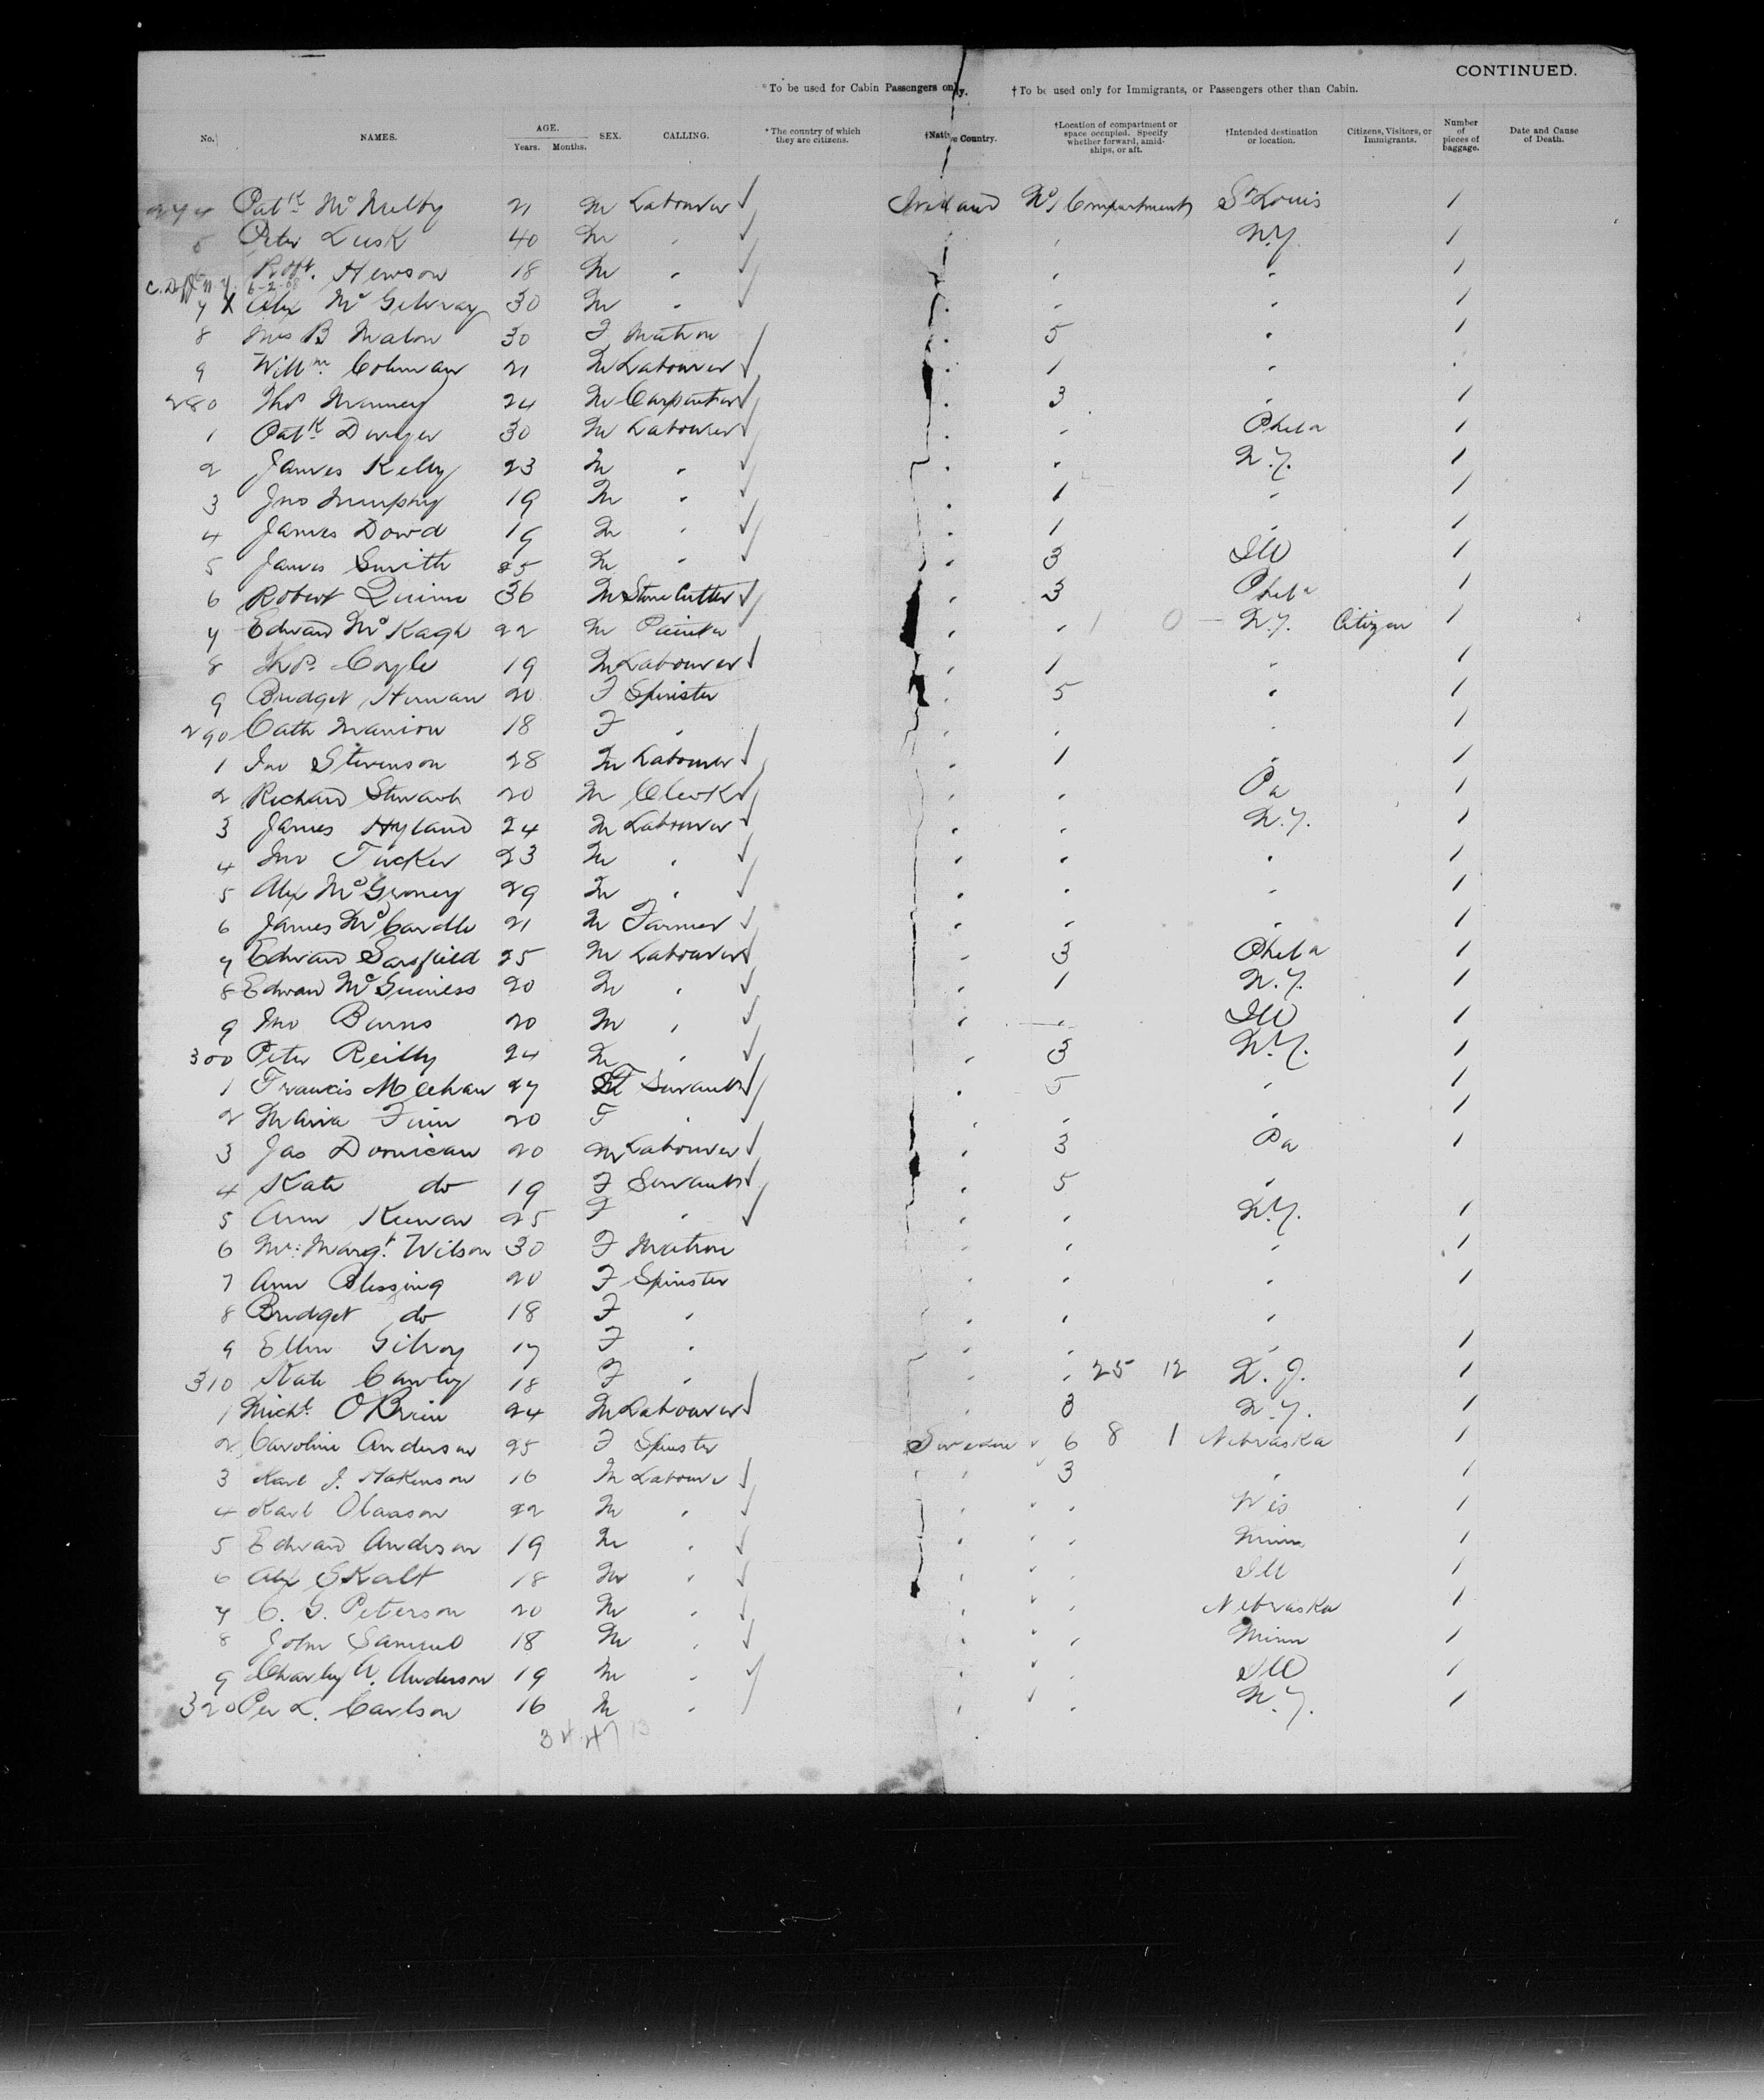 CONTINUED.
*To be used for Cabin Passengers only. †To be used only for Immigrants, or Passengers other than Cabin.
No. NAMES. AGE. Years. Months. SEX. CALLING. *The country of which they are citizens. †Native Country. †Location of compartment or space occupied. Specify whether forward, amidships, or aft. †Intended destination or location. Citizens, Visitors, or Immigrants. Number of pieces of baggage. Date and Cause of Death.
Patk Mc 21 M Labourer Ireland No 1 Compartment St Louis 1
5 Peter Lusk 40 M " " " N.Y. 1
Robt. Hewson 18 M " " " " 1
6-2-08
7 X Alex McGilvray 30 M " " " " 1
8 Mrs B Malon 30 F Matron " 5 " 1
9 Willm Colman 21 M Labourer " 1 "
280 Thos Manney 24 M Carpenter " 3 " 1
1 Patk Dwyer 30 M Labourer " " Phela 1
2 James Kelly 23 M " " " N.Y. 1
3 Jno Murphy 19 M " " 1 " 1
4 James Dowd 19 M " " 1 " 1
5 James Smith 25 M " " 3 Ill 1
6 Robert Quinn 36 M Stone Cutter " 3 Phela 1
7 Edward McKagh 22 M Painter " " 1 0 — N.Y. Citizen 1
8 Thos. Coyle 19 M Labourer " 1 " 1
9 Bridget Hernan 20 F Spinster " 5 " 1
290 Cath Manion 18 F " " " " 1
1 Jno Stevenson 28 M Labourer " 1 " 1
2 Richard Stewart 20 M Clerk " " Pa 1
3 James Hyland 24 M Labourer " " N.Y. 1
4 Jno Tucker 23 M " " " " 1
5 Alex McGroney 29 M " " " " 1
6 James McCardle 21 M Farmer " " " 1
7 Edward Sarsfield 25 M Labourer " 3 Phela 1
8 Edward McGuiness 20 M " " 1 N.Y. 1
9 Jno Burns 20 M " " " Ill 1
300 Peter Reilly 24 M " " 3 N.Y. 1
1 Francis Meehan 27 F Servant " 5 " 1
2 Maria Finn 20 F " " " " 1
3 Jas Dornican 20 M Labourer " 3 Pa 1
4 Kate do 19 F Servant " 5 "
5 Ann Keenan 25 F " " " N.Y. 1
6 Mrs Margt. Wilson 30 F Matron " " " 1
7 Ann Blessing 20 F Spinster " " " 1
8 Bridget do 18 F " " " "
9 Ellen Gilroy 17 F " " " " 1
310 Kate Cawley 18 F " " " 25 12 N.J. 1
1 Michl. O'Brien 24 M Labourer " 3 N.Y. 1
2 Caroline Anderson 25 F Spinster Sweden 6 8 1 Nebraska 1
3 Karl J. Hakinson 16 M Labourer " 3 " 1
4 Karl Olasson 22 M " " " Wis 1
5 Edward Anderson 19 M " " " Minn 1
6 Alex Skalt 18 M " " " Ill 1
7 C. G. Peterson 20 M " " " Nebraska 1
8 John Samuel 18 M " " " Minn 1
9 Charley A. Anderson 19 M " " " Ill 1
320 Per L. Carlson 16 M " " " N.Y. 1
34 47 13